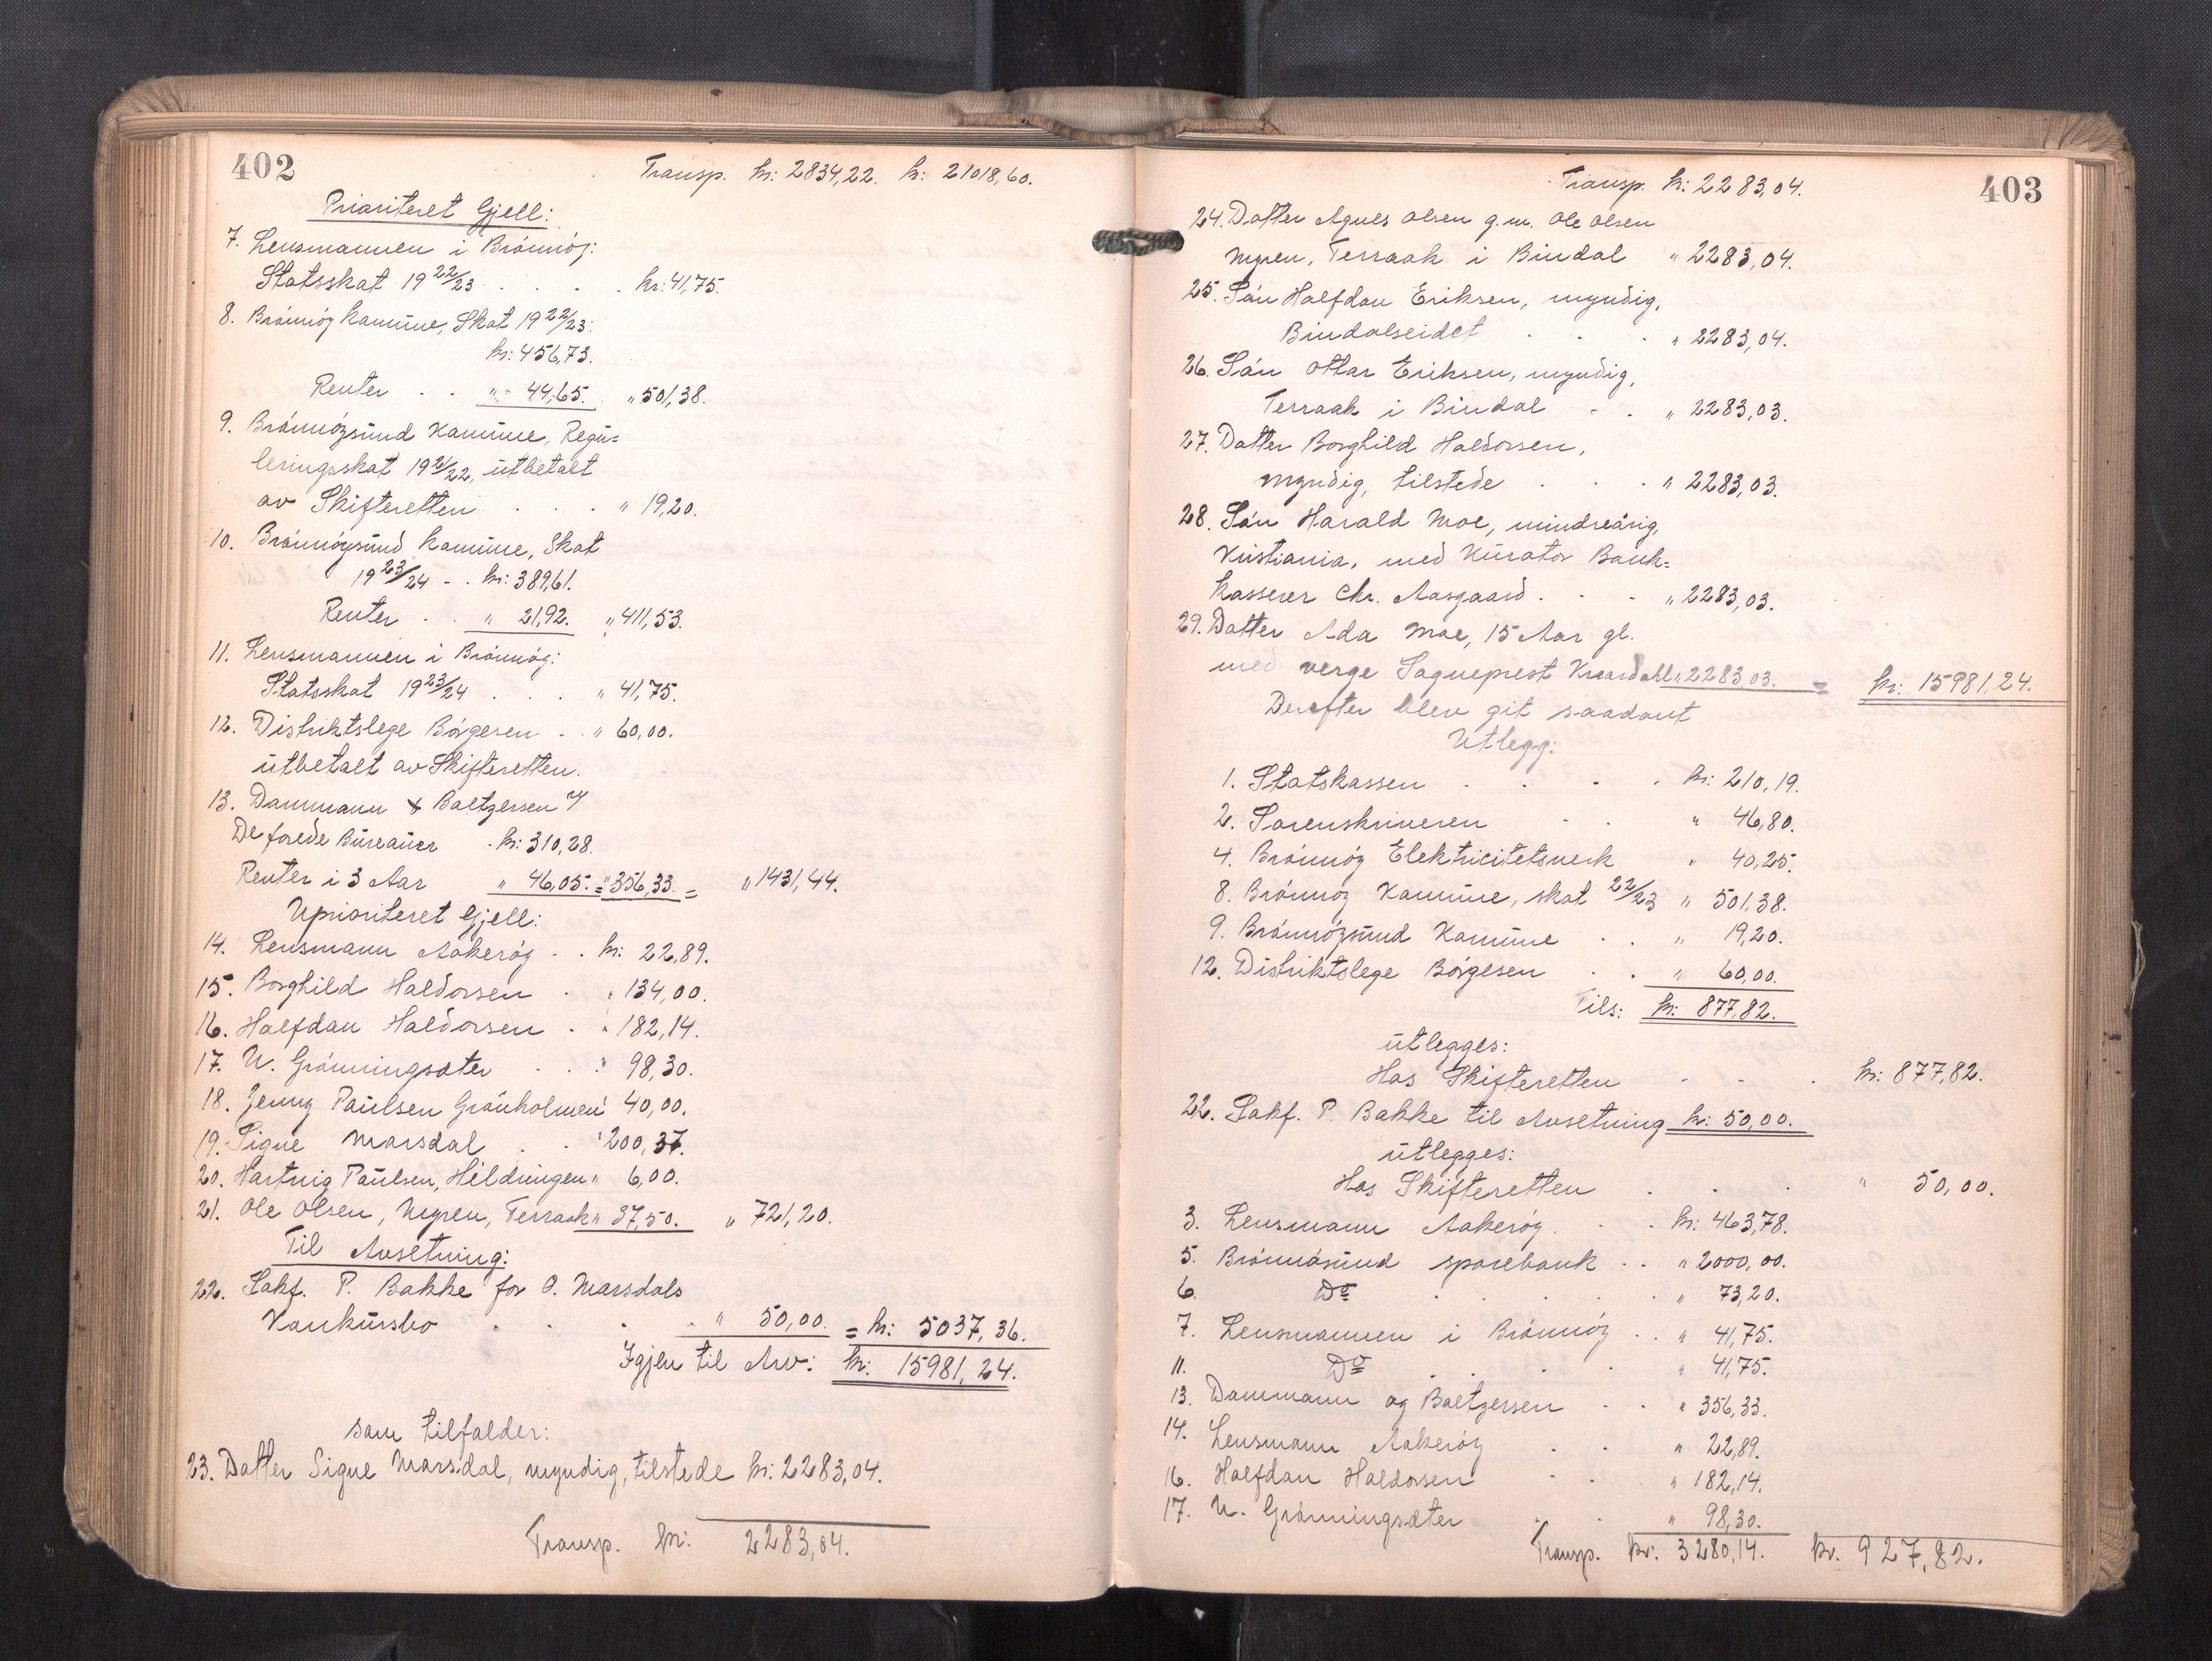 402
Transp. kr: 2834,22. kr: 21018,60.
Prioriteret Gjell:
7. Lensmannen i Brönnöy:
Statsskat 19 22/23 . . . . kr: 41,75.
8. Brönnöy Kommune, Skat 19 22/23:
kr: 456,73.
Renter . . " 44,65. " 501,38.
9. Brönnöysund Kommune, Regu=
leringsskat 19 21/22, utbetalt
av Skifteretten . . . " 19,20.
10. Brönnöysund Kommune, Skat
19 23/24 - . kr: 389,61.
Renter . . " 21,92. " 411,53.
11. Lensmannen i Brönnöy:
Statsskat 19 23/24 . . . " 41,75.
12. Distriktslege Börgesen . . " 60,00.
utbetalt av Skifteretten.
13. Dammann & Baltzersen v/
De forede Bureauer . kr: 310,28.
Renter i 3 Aar " 46,05. = " 356,33. = " 1431,44.
Uprioriteret Gjell:
14. Lensmann Aakeröy - . kr: 22,89.
15. Borghild Haldorsen . " 134,00.
16. Halfdan Haldorsen . " 182,14.
17. N. Grönningsæter . . " 98,30.
18. Jenny Paulsen Grönholmen " 40,00.
19. Signe Marsdal . . " 200,37.
20. Hartvig Paulsen, Hildringen " 6,00.
21. Ole Olsen, Myren, Terraak " 37,50. " 721,20.
Til Avsetning:
22. Sakf. P. Bakke for O. Marsdals
Konkursbo . . . . " 50,00. = kr: 5037,36.
Igjen til Arv: kr: 15981,24.
som tilfalder:
23. Datter Signe Marsdal, myndig, tilstede kr: 2283,04.
Transp. kr: 2283,04.
403
Transp. kr: 2283,04.
24. Datter Agnes Olsen g.m. Ole Olsen
Myren, Terraak i Bindal " 2283,04.
25. Sön Halfdan Eriksen, myndig,
Bindalseidet . . . " 2283,04.
26. Sön Ottar Eriksen, myndig,
Terraak i Bindal - . " 2283,03.
27. Datter Borghild Haldorsen,
myndig, tilstede . . . " 2283,03.
28. Sön Harald Moe, mindreårig,
Kristiania, med Kurator Bank=
kasserer Chr. Aasgaard . . - " 2283,03.
29. Datter Ada Moe, 15 Aar gl.
med verge Sogneprest Kvardahl " 2283,03. = kr: 15981,24.
Derefter blev git saadant
Utlegg:
1. Statskassen . . . . kr: 210,19.
2. Sorenskriveren . . " 46,80.
4. Brönnöy Elektricitetsverk " 40,25.
8. Brönnöy Kommune, skat 22/23 " 501,38.
9. Brönnöysund Kommune . . " 19,20.
12. Distriktslege Börgesen . . " 60,00.
Tils: kr: 877,82.
utlegges:
Hos Skifteretten - - . kr: 877,82.
22. Sakf. P. Bakke til Avsetning kr: 50,00.
utlegges:
Hos Skifteretten . . . " 50,00.
3. Lensmann Aakeröy . . . kr: 463,78.
5. Brönnösund sparebank . . " 2000,00.
6. Do . . . . . " 73,20.
7. Lensmannen i Brönnöy . . " 41,75.
11. Do . . . " 41,75.
13. Dammann og Baltzersen . . " 356,33.
14. Lensmann Aakeröy . . " 22,89.
16. Halfdan Haldorsen . . " 182,14.
17. N. Grönningsæter . . " 98,30.
Transp. kr. 3280,14. kr. 927,82.